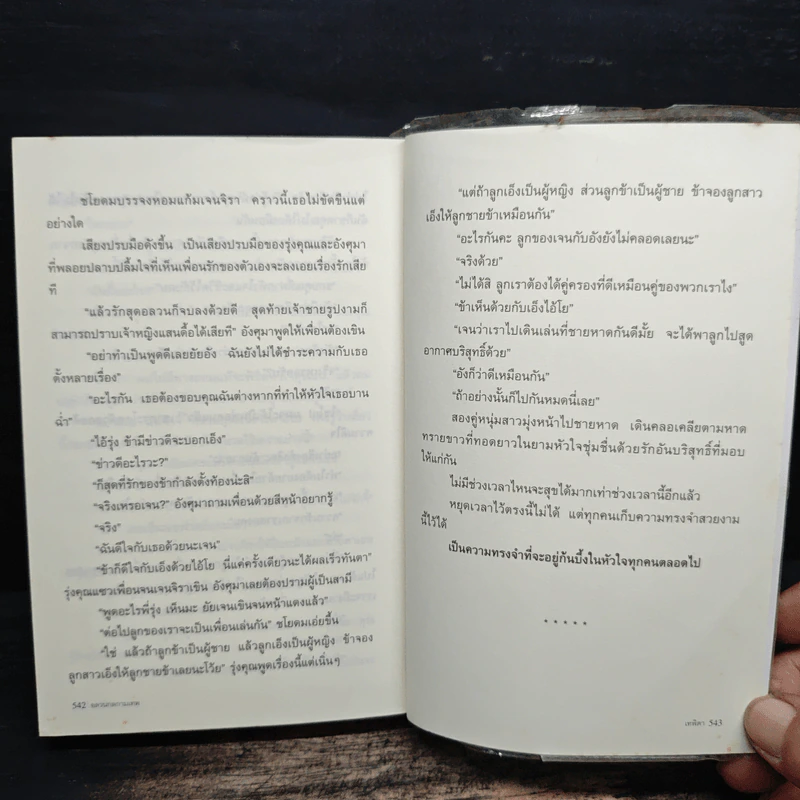 ชโยดมบรรจงหอมแก้มเจนจิรา คราวนี้เธอไม่ขัดขืนแต่
อย่างใด
เสียงปรบมือดังขึ้น เป็นเสียงปรบมือของรุ่งคุณและอังศุมา
ที่พลอยปลาบปลื้มใจที่เห็นเพื่อนรักของตัวเองจะลงเอยเรื่องรักเสีย
ที
"แล้วรักสุดอลวนก็จบลงด้วยดี สุดท้ายเจ้าชายรูปงามก็
สามารถปราบเจ้าหญิงแสนดื้อได้เสียที" อังศุมาพูดให้เพื่อนต้องเขิน
"อย่าทำเป็นพูดดีเลยยัยอัง ฉันยังไม่ได้ชำระความกับเธอ
ตั้งหลายเรื่อง"
"อะไรกัน เธอต้องขอบคุณฉันต่างหากที่ทำให้หัวใจเธอบาน
ฉ่ำ"
"ไอ้รุ่ง ข้ามีข่าวดีจะบอกเอ็ง"
"ข่าวดีอะไรวะ?"
"ก็สุดที่รักของข้ากำลังตั้งท้องน่ะสิ"
"จริงเหรอเจน?" อังศุมาถามเพื่อนด้วยสีหน้าอยากรู้
"จริง"
"ฉันดีใจกับเธอด้วยนะเจน"
"ข้าก็ดีใจกับเอ็งด้วยไอ้โย นี่แค่ครั้งเดียวนะได้ผลเร็วทันตา"
รุ่งคุณแซวเพื่อนจนเจนจิราเขิน อังศุมาเลยต้องปรามผู้เป็นสามี
"พูดอะไรพี่รุ่ง เห็นมะ ยัยเจนเขินจนหน้าแดงแล้ว"
"ต่อไปลูกของเราจะเป็นเพื่อนเล่นกัน" ชโยดมเอ่ยขึ้น
"ใช่ แล้วถ้าลูกข้าเป็นผู้ชาย แล้วลูกเอ็งเป็นผู้หญิง ข้าจอง
ลูกสาวเอ็งให้ลูกชายข้าเลยนะโว้ย" รุ่งคุณพูดเรื่องนี้แต่เนิ่นๆ
542
"แต่ถ้าลูกเอ็งเป็นผู้หญิง ส่วนลูกข้าเป็นผู้ชาย ข้าจองลูกสาว
เอ็งให้ลูกชายข้าเหมือนกัน"
"อะไรกันคะ ลูกของเจนกับอังยังไม่คลอดเลยนะ"
"จริงด้วย"
"ไม่ได้สิ ลูกเราต้องได้คู่ครองที่ดีเหมือนคู่ของพวกเราไง"
"ข้าเห็นด้วยกับเอ็งไอ้โย"
"เจนว่าเราไปเดินเล่นที่ชายหาดกันดีมั้ย จะได้พาลูกไปสูด
อากาศบริสุทธิ์ด้วย"
"อังก็ว่าดีเหมือนกัน"
"ถ้าอย่างนั้นก็ไปกันหมดนี่เลย"
สองคู่หนุ่มสาวมุ่งหน้าไปชายหาด เดินคลอเคลียตามหาด
ทรายขาวที่ทอดยาวในยามหัวใจชุ่มชื่นด้วยรักอันบริสุทธิ์ที่มอบ
ให้แก่กัน
ไม่มีช่วงเวลาไหนจะสุขได้มากเท่าช่วงเวลานี้อีกแล้ว
หยุดเวลาไว้ตรงนี้ไม่ได้ แต่ทุกคนเก็บความทรงจำสวยงาม
นี้ไว้ได้
เป็นความทรงจำที่จะอยู่กันบึ้งในหัวใจทุกคนตลอดไป
* * * * *
543